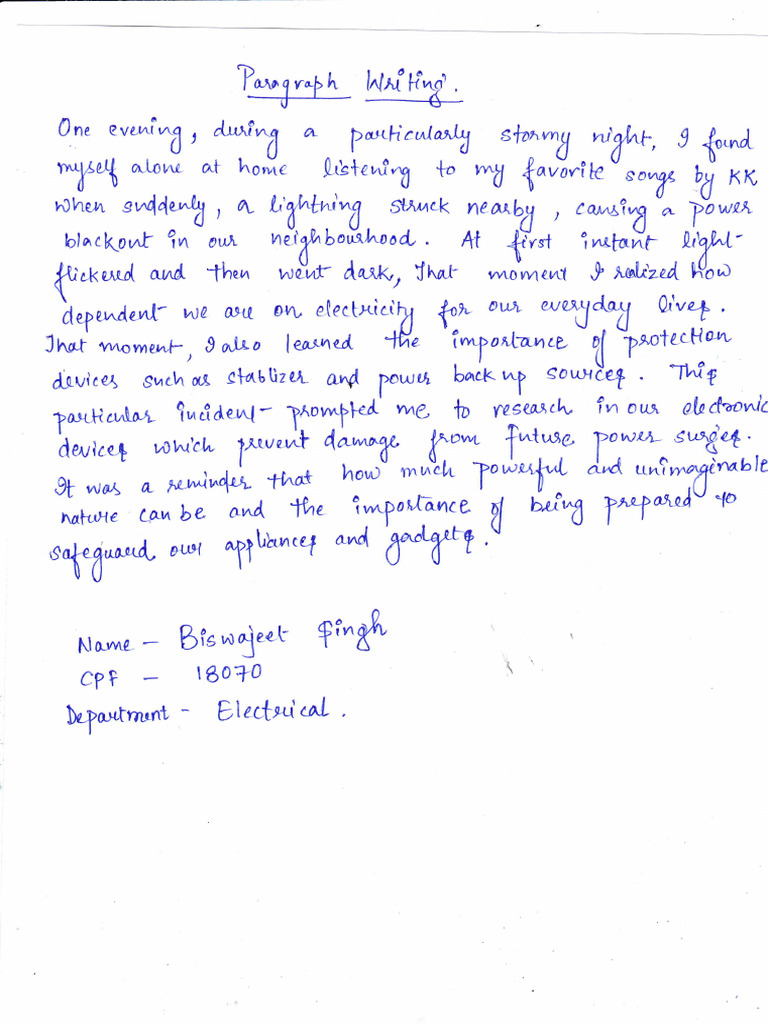 Paragraph Writing.
One evening, during a particularly stormy night, I found
myself alone at home listening to my favorite songs by KK
when suddenly, a lightning struck nearby, causing a power
blackout in our neighbourhood. At first instant light
flickered and then went dark, That moment I realized how
dependent we are on electricity for our everyday lives.
That moment, I also learned the importance of protection
devices such as stablizer and power back up sources. This
particular incident prompted me to research in our electronic
devices which prevent damage from future power surges.
It was a reminder that how much powerful and unimaginable
nature can be and the importance of being prepared to
safeguard our appliances and gadgets.
Name - Biswajeet Singh
CPF - 18070
Department - Electrical.